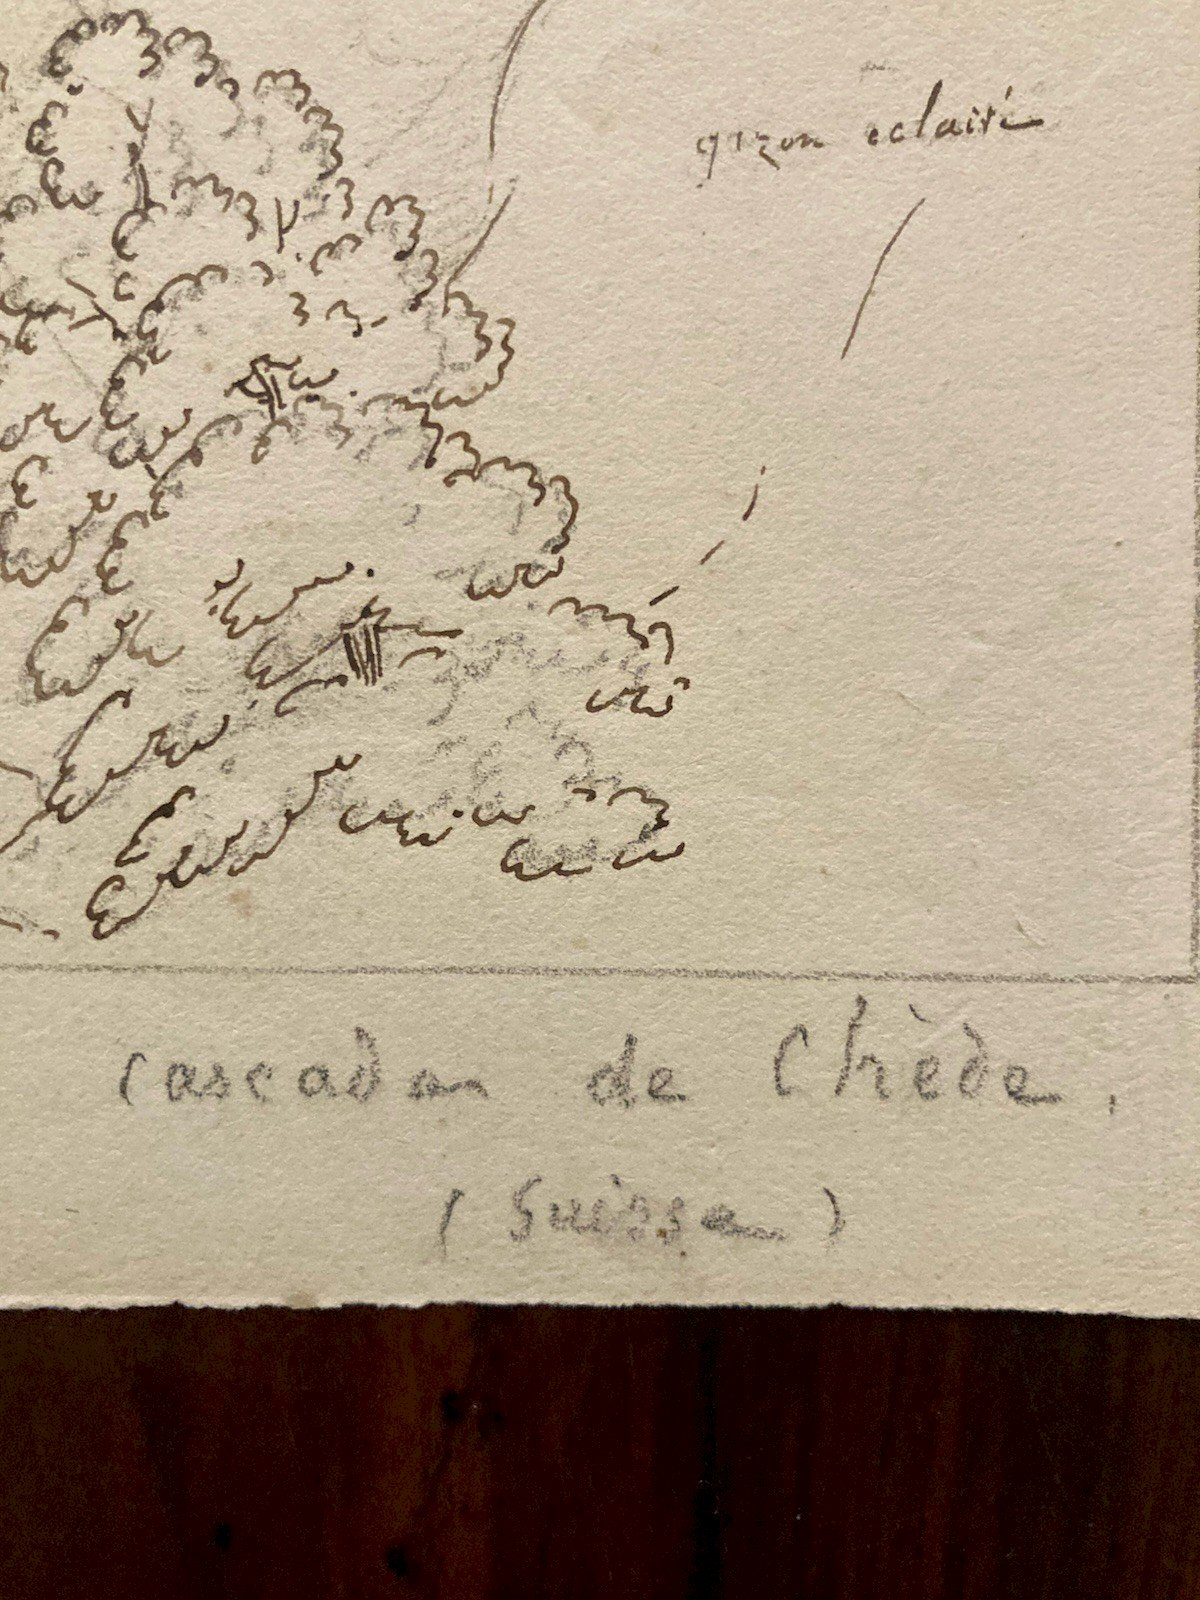 gazon eclairé
Cascade de Chède.
(Suisse)